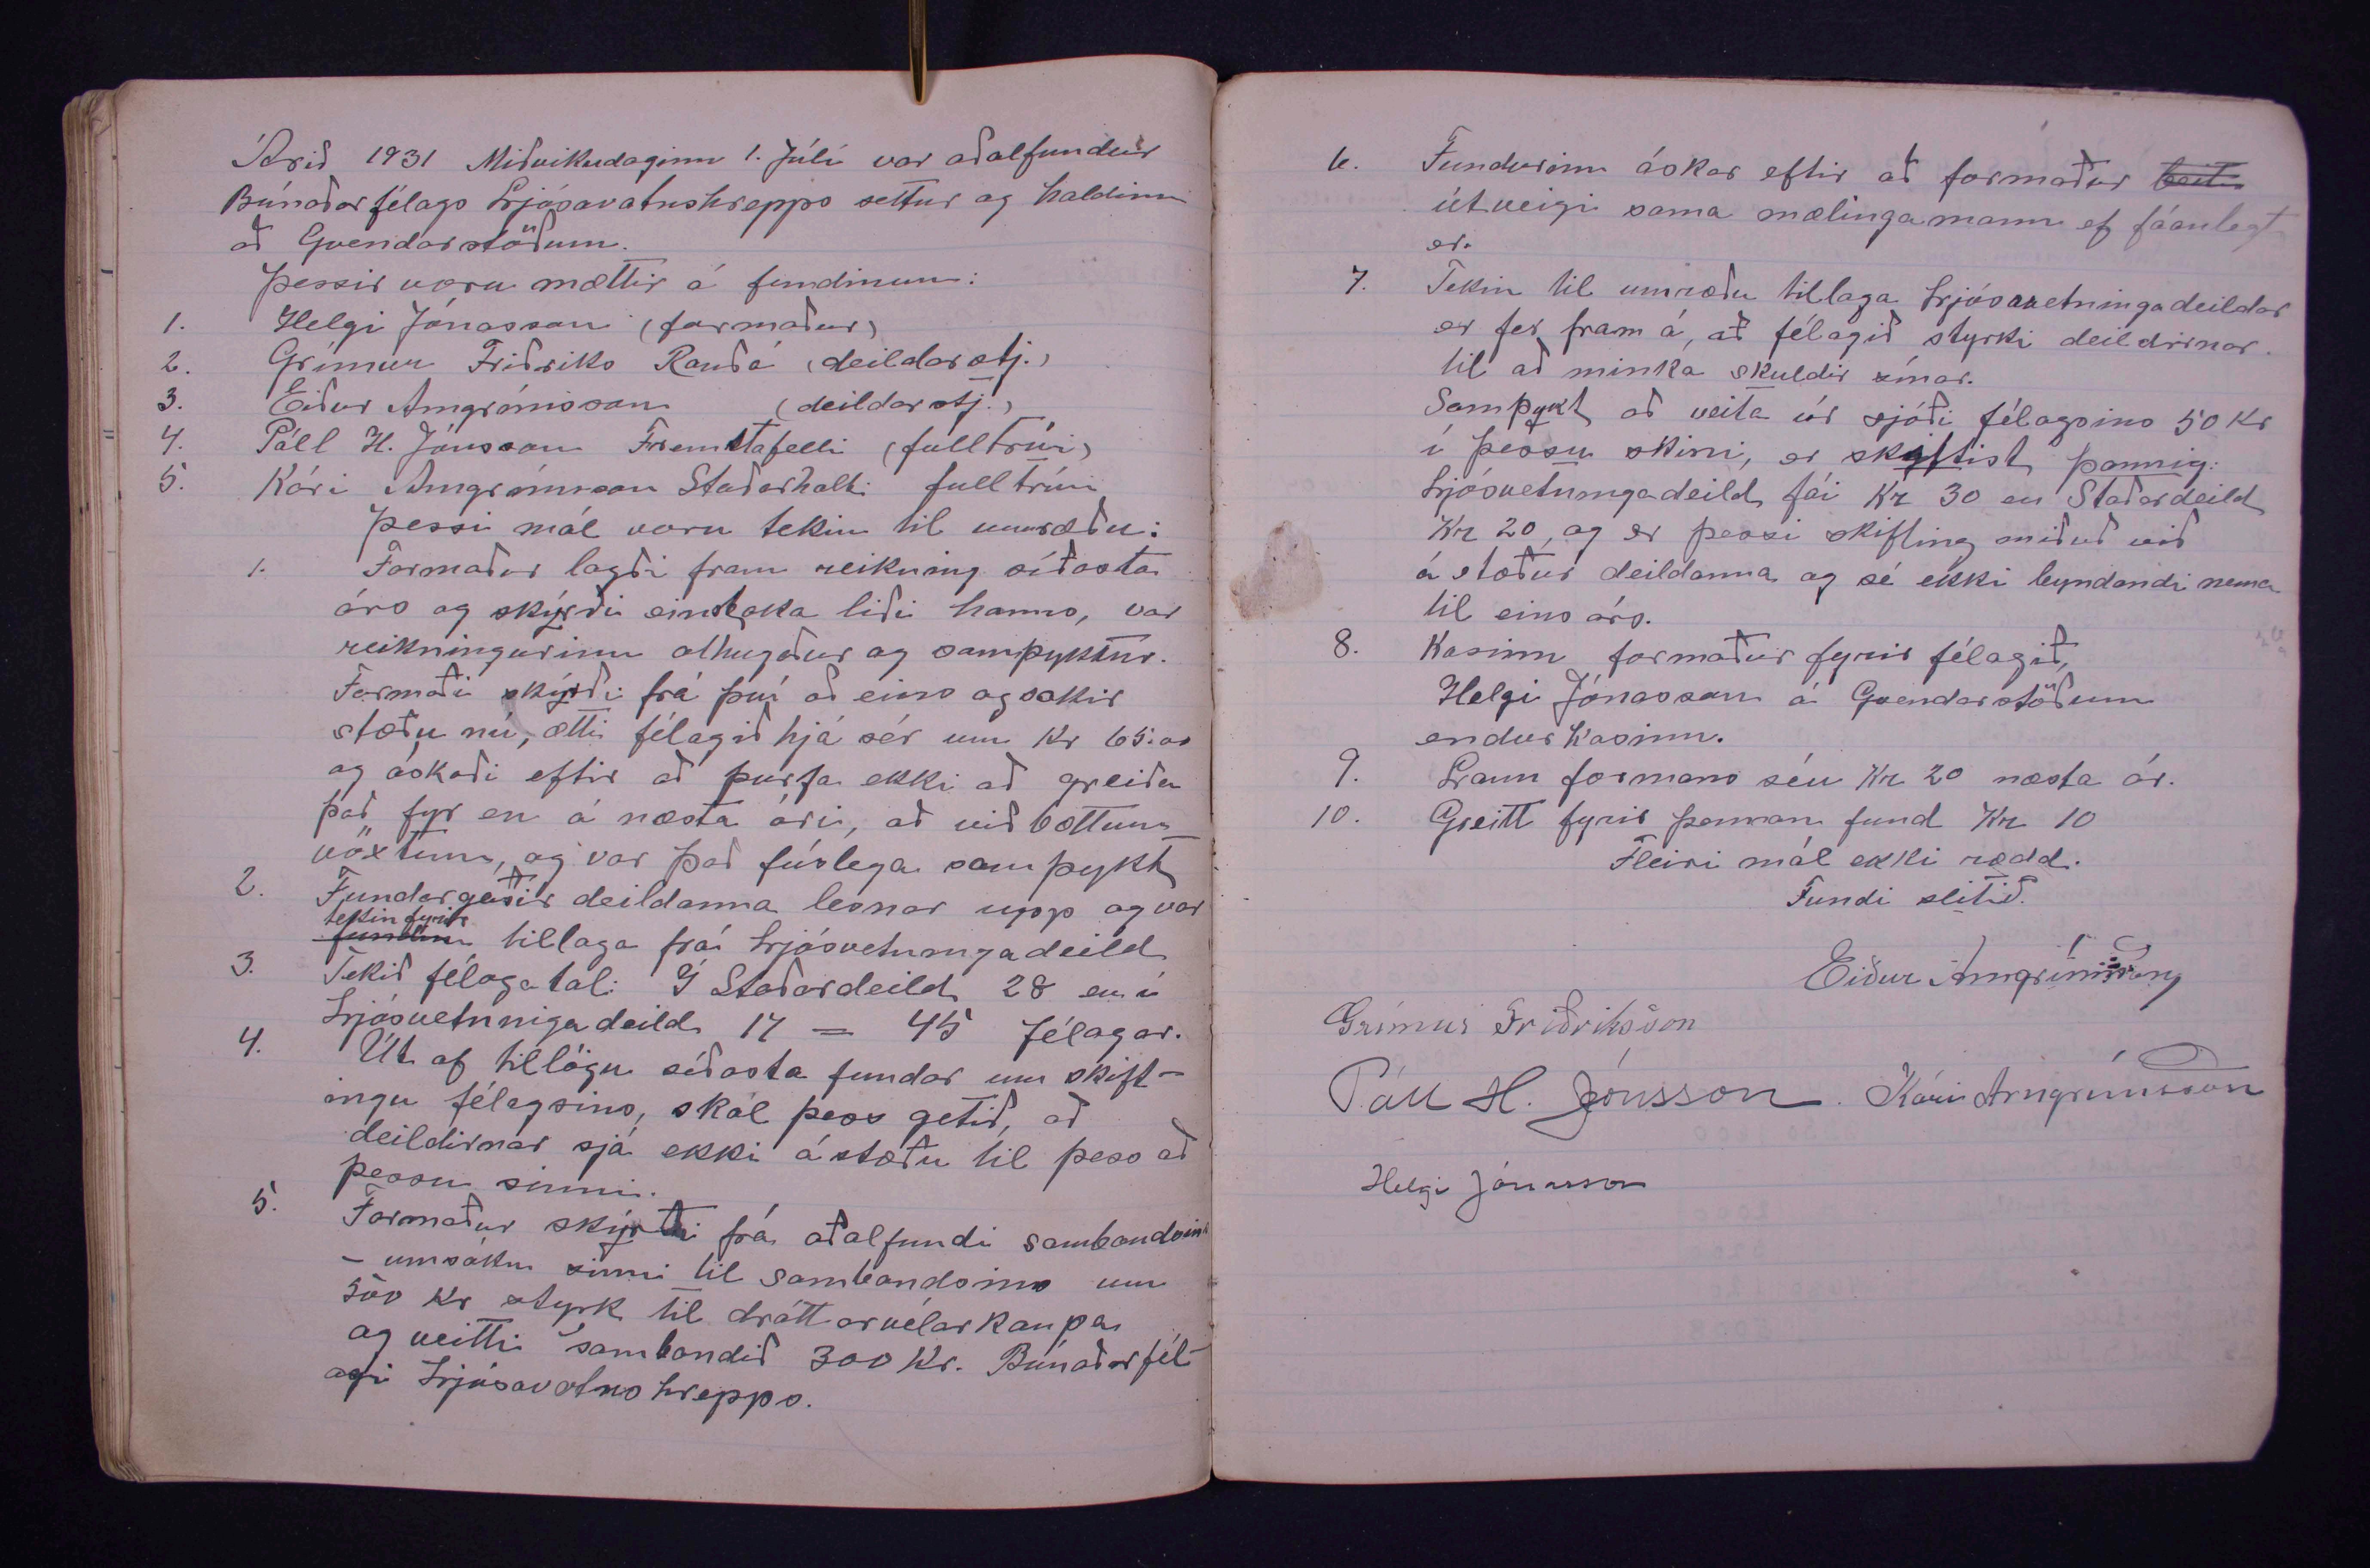 Árið 1931 Miðvikudaginn 1. Júlí var aðalfundur
Búnaðarfélags Ljósavatnshrepps settur og haldinn
að Gvendarstöðum.
Þessir voru mættir á fundinum:
1. Helgi Jónasson (formaður)
2. Grímur Friðriks Rauðá (deildarstj.)
3. Eiður Arngrímsson (deildarstj.)
4. Páll H. Jónsson Fremstafelli (fulltrúi)
5. Kári Arngrímsson Staðarholti fulltrúi
Þessi mál voru tekin til umræðu:
1. Formaður lagði fram reikning síðasta
árs og skýrði einstaka liði hanns, var
reikningurinn athugaður og samþyktur.
Formaði skýrði frá því að eins og sakir
stæðu nú, ætti félagið hjá sér um Kr 65.00
og óskaði eftir að þurfa ekki að greiða
það fyr en á næsta ári, að viðbættum
vöxtum, og var það fúslega samþykt
2. Fundargerðir deildanna lesnar upp og var
tekin fyrir
tillaga frá Ljósvetningadeild
3. Tekið félagatal: Í Staðardeild 28 en í
Ljósvetningadeild 17 = 45 félagar.
4. Út af tillögu síðasta fundar um skift-
ingu félagsins, skal þess getið, að
deildirnar sjá ekki ástæðu til þess að
þessu sinni.
5. Formaður skýrði frá aðalfundi sambandsins
- umsókn sinni til sambandsins um
500 Kr styrk til dráttarvélarkaupa
og veitti sambandið 300 Kr. Búnaðarfél-
agi Ljósavatnshrepps.
6. Fundurinn óskar eftir að formaður
útveigi sama mælingamann ef fáanlegt
er.
7. Tekin til umræðu tillaga Ljósavetningadeildar
er fer fram á, að félagið styrki deildirnar
til að minka skuldir sínar.
Samþykt að veita úr sjóði félagsins 50 Kr
í þessu skini, er skiftist þannig:
Ljósvetningadeild fái Kr 30 en Staðardeild
Kr 20, og er þessi skifting miðuð við
ástæður deildanna og sé ekki byndandi nema
til eins árs.
8. Kosinn formaður fyrir félagið,
Helgi Jónasson á Gvendarstöðum
endurkosinn.
9. Laun formans séu Kr 20 næsta ár.
10. Greitt fyrir þennan fund Kr 10
Fleiri mál ekki rædd.
Fundi slitið.
Eiður Arngrímsson
Grímur Friðriksson
Páll H. Jónsson. Kári Arngrímsson
Helgi Jónasson